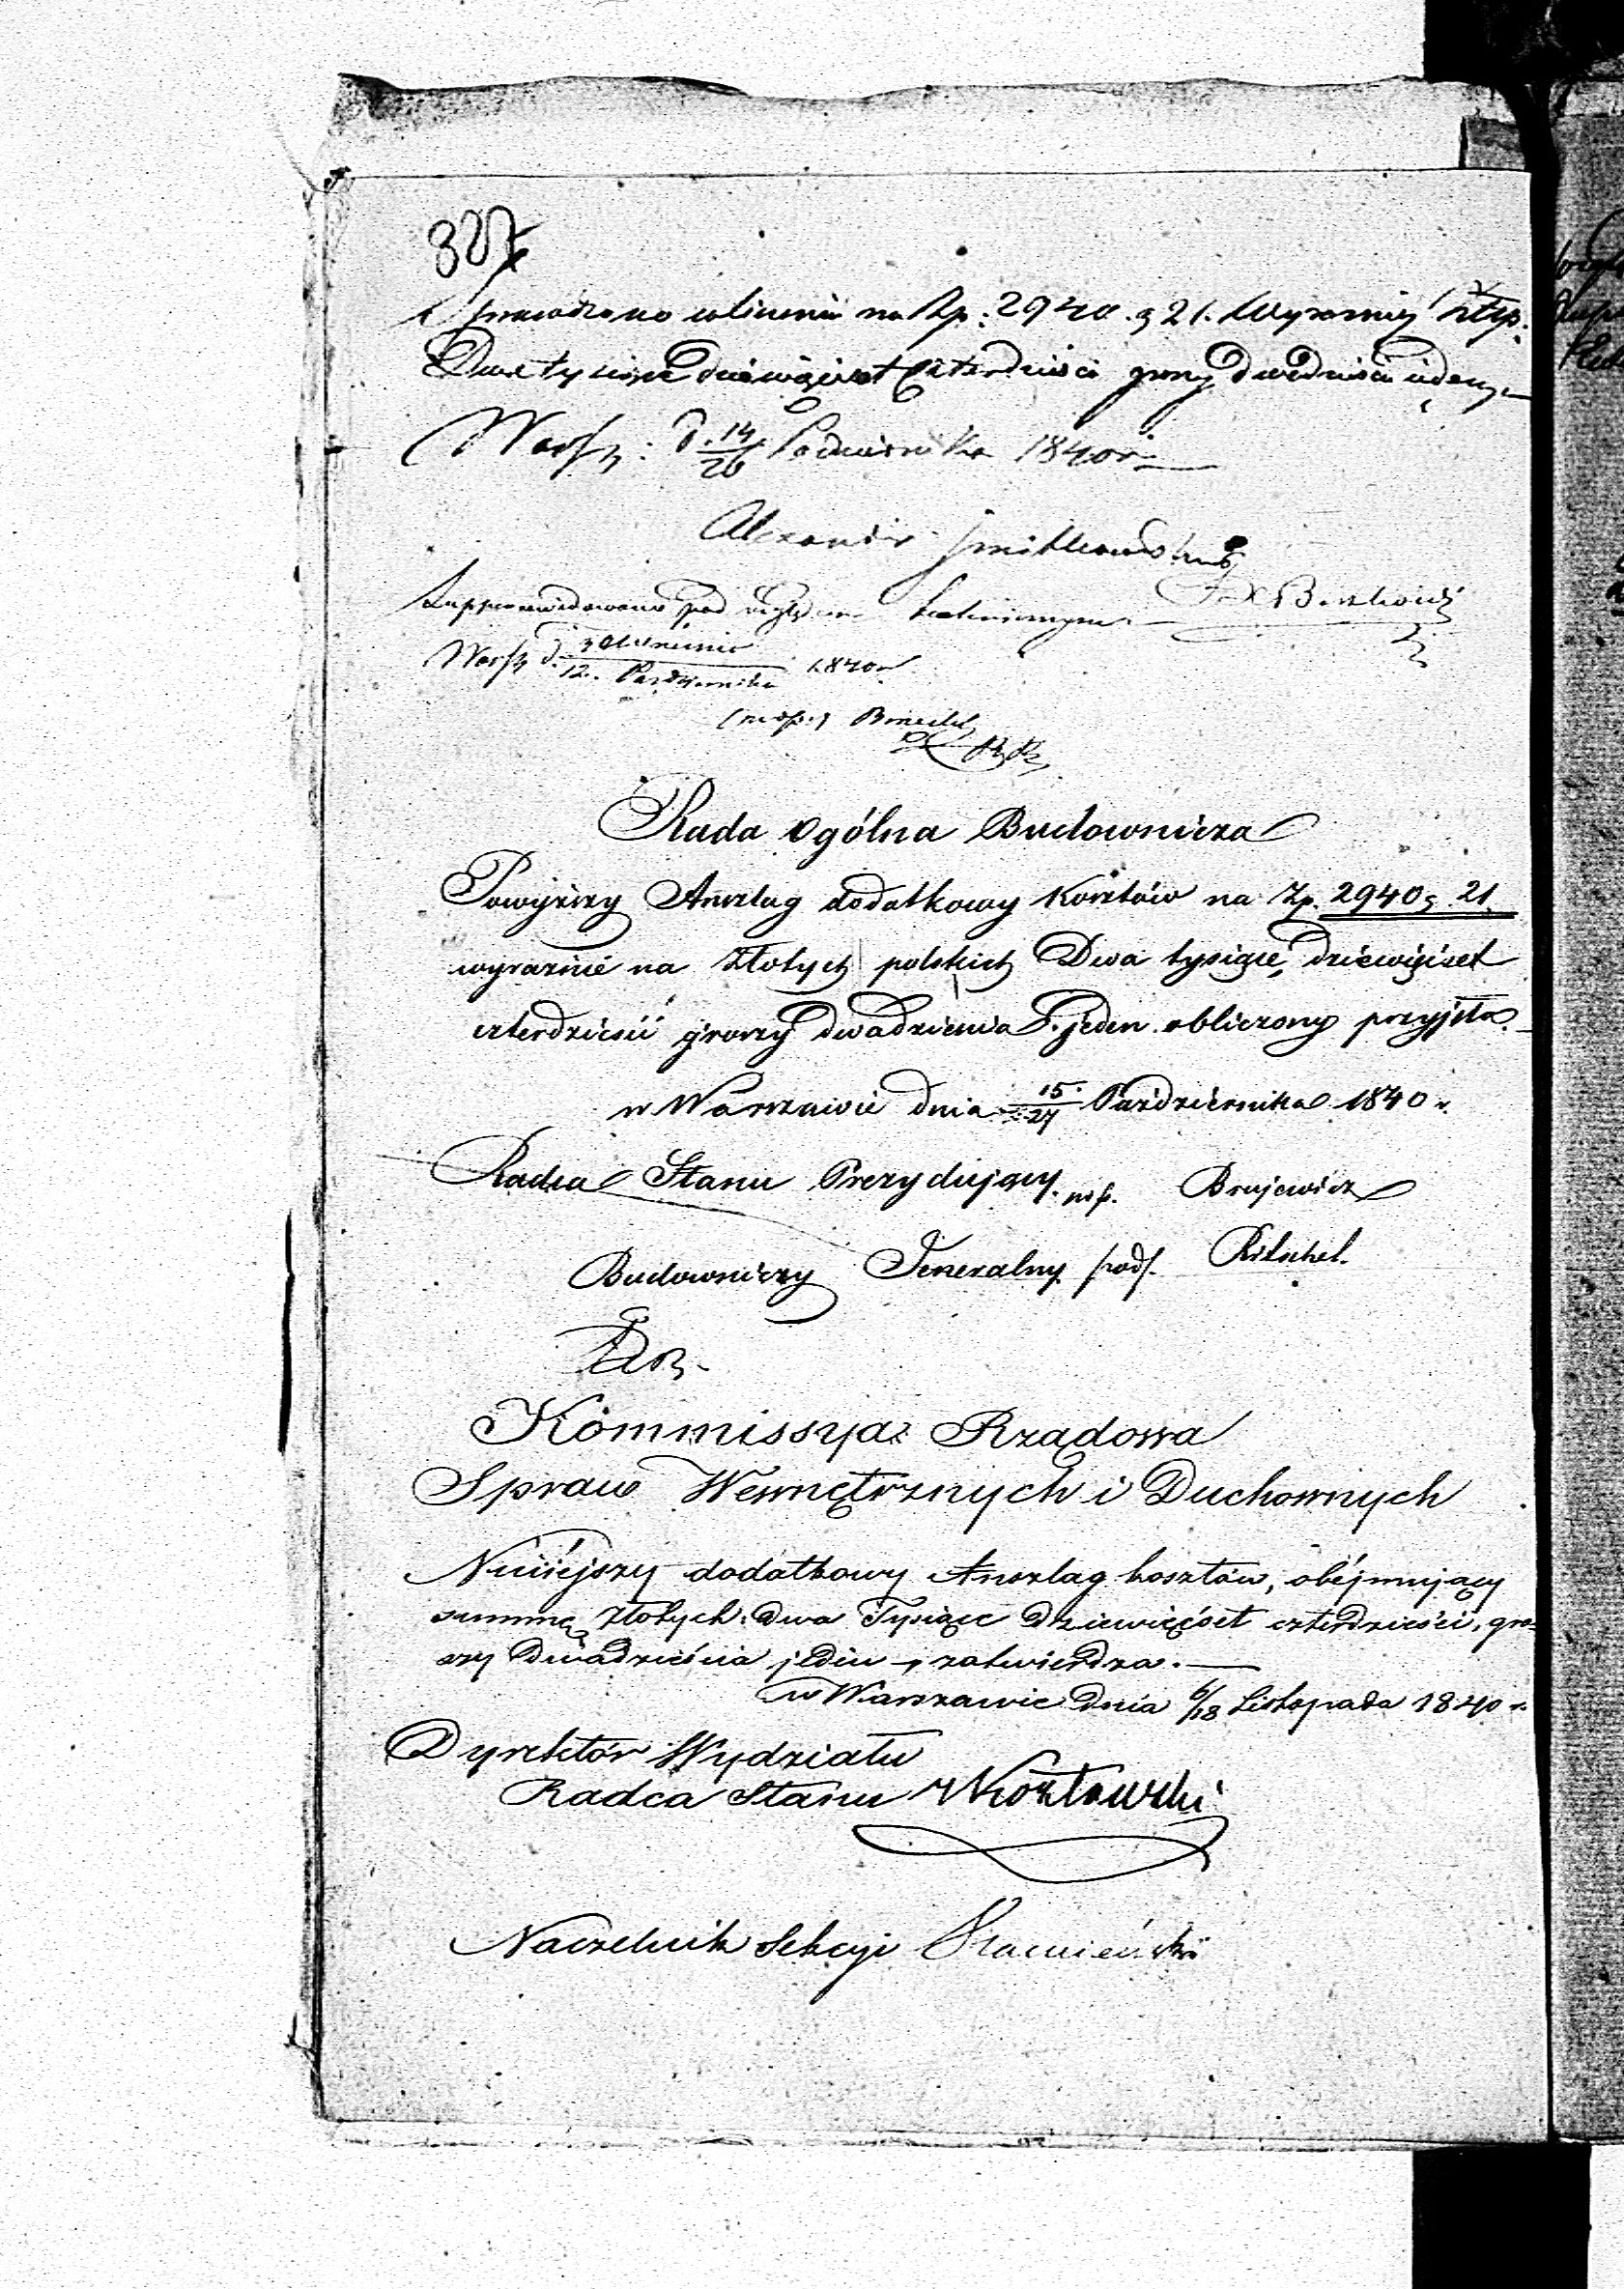 327
na Zp: 2940. g 21. Wyraznie Złtp.
Dwa tysiące dziewięćset Czterdzieści groszy dwadzieścia jeden
Warsz: d. 14/26 Października 1840 r.
Alexander
pod względem technicznym
Warsz d. 12. Października 1840 r
Rada Ogólna Budownicza
Powyższy Anszlag dodatkowy Kosztów na Zp. 2940 g. 21
wyraznie na Złotych polskich Dwa tysiące dziewięćset
czterdzieści groszy dwadzieścia jeden obliczony przyjęła.
w Warszawie dnia 15/27 Października 1840 r.
Radca Stanu Prezydujący
Budowniczy Jeneralny podp. Ritschel.
Kommissya Rządowa
Spraw Wewnętrznych i Duchownych
Niniejszy dodatkowy Anszlag kosztów, obéjmujący
summę Złotych Dwa Tysiące Dziewięćset czterdzieści, gro-
szy Dwadzieścia jeden, zatwierdza.
w Warszawie Dnia 6/18 Listopada 1840 r.
Dyrektór Wydziału
Radca Stanu Kozłowski
Naczelnik Sekcyi Kamieński